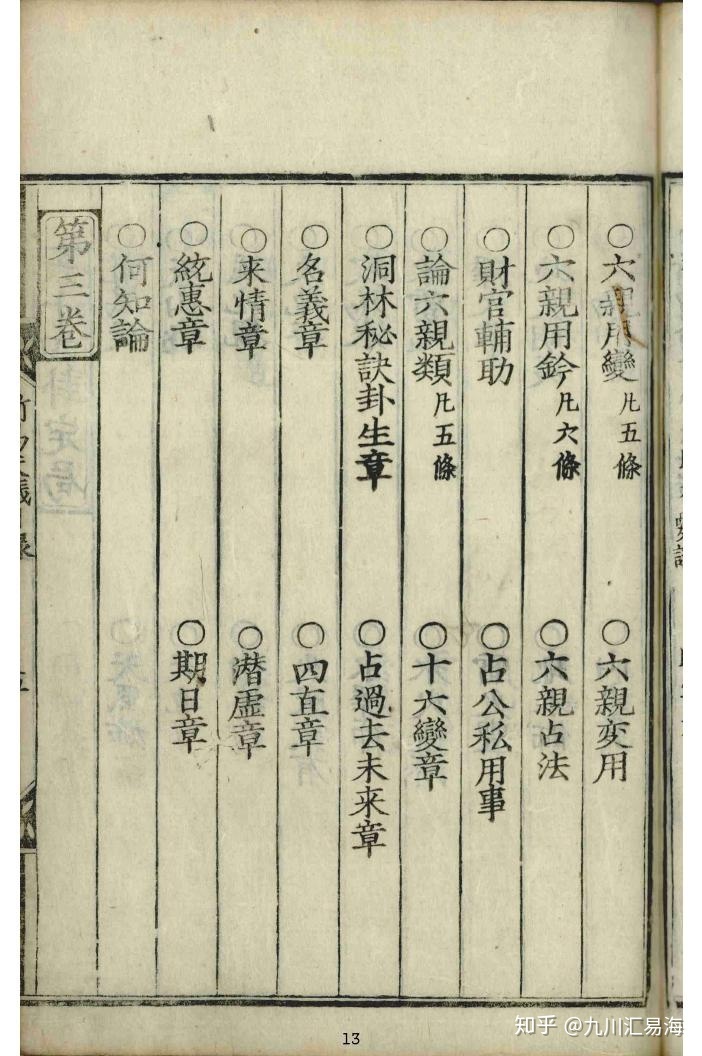 ○六親用變凡五條 ○六親变用
○六親用鈐凡六條 ○六親占法
○財官輔助 ○占公私用事
○論六親類凡五條 ○十六變章
○洞林秘訣卦生章 ○占過去未来章
○名義章 ○四直章
○来情章 ○潜虛章
○統惠章 ○期日章
○何知論
第三卷
13
知乎 @九川汇易海